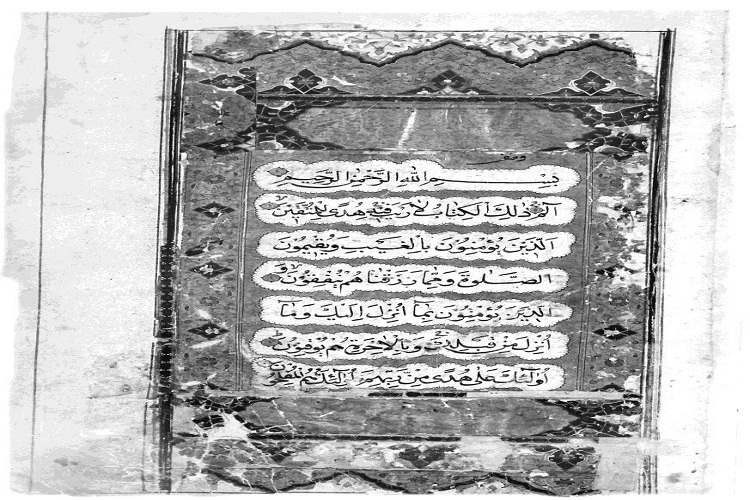 وقف
بِسْمِ اللهِ الرَّحْمٰنِ الرَّحِيمِ
الم ذٰلِكَ الْكِتَابُ لَا رَيْبَ فِيهِ هُدًى لِلْمُتَّقِينَ
الَّذِينَ يُؤْمِنُونَ بِالْغَيْبِ وَيُقِيمُونَ
الصَّلٰوةَ وَمِمَّا رَزَقْنَاهُمْ يُنْفِقُونَ وَ
الَّذِينَ يُؤْمِنُونَ بِمَا أُنْزِلَ إِلَيْكَ وَمَا
أُنْزِلَ مِنْ قَبْلِكَ وَبِالْآخِرَةِ هُمْ يُوقِنُونَ
أُولٰئِكَ عَلَى هُدًى مِنْ رَبِّهِمْ وَأُولٰئِكَ هُمُ الْمُفْلِحُونَ